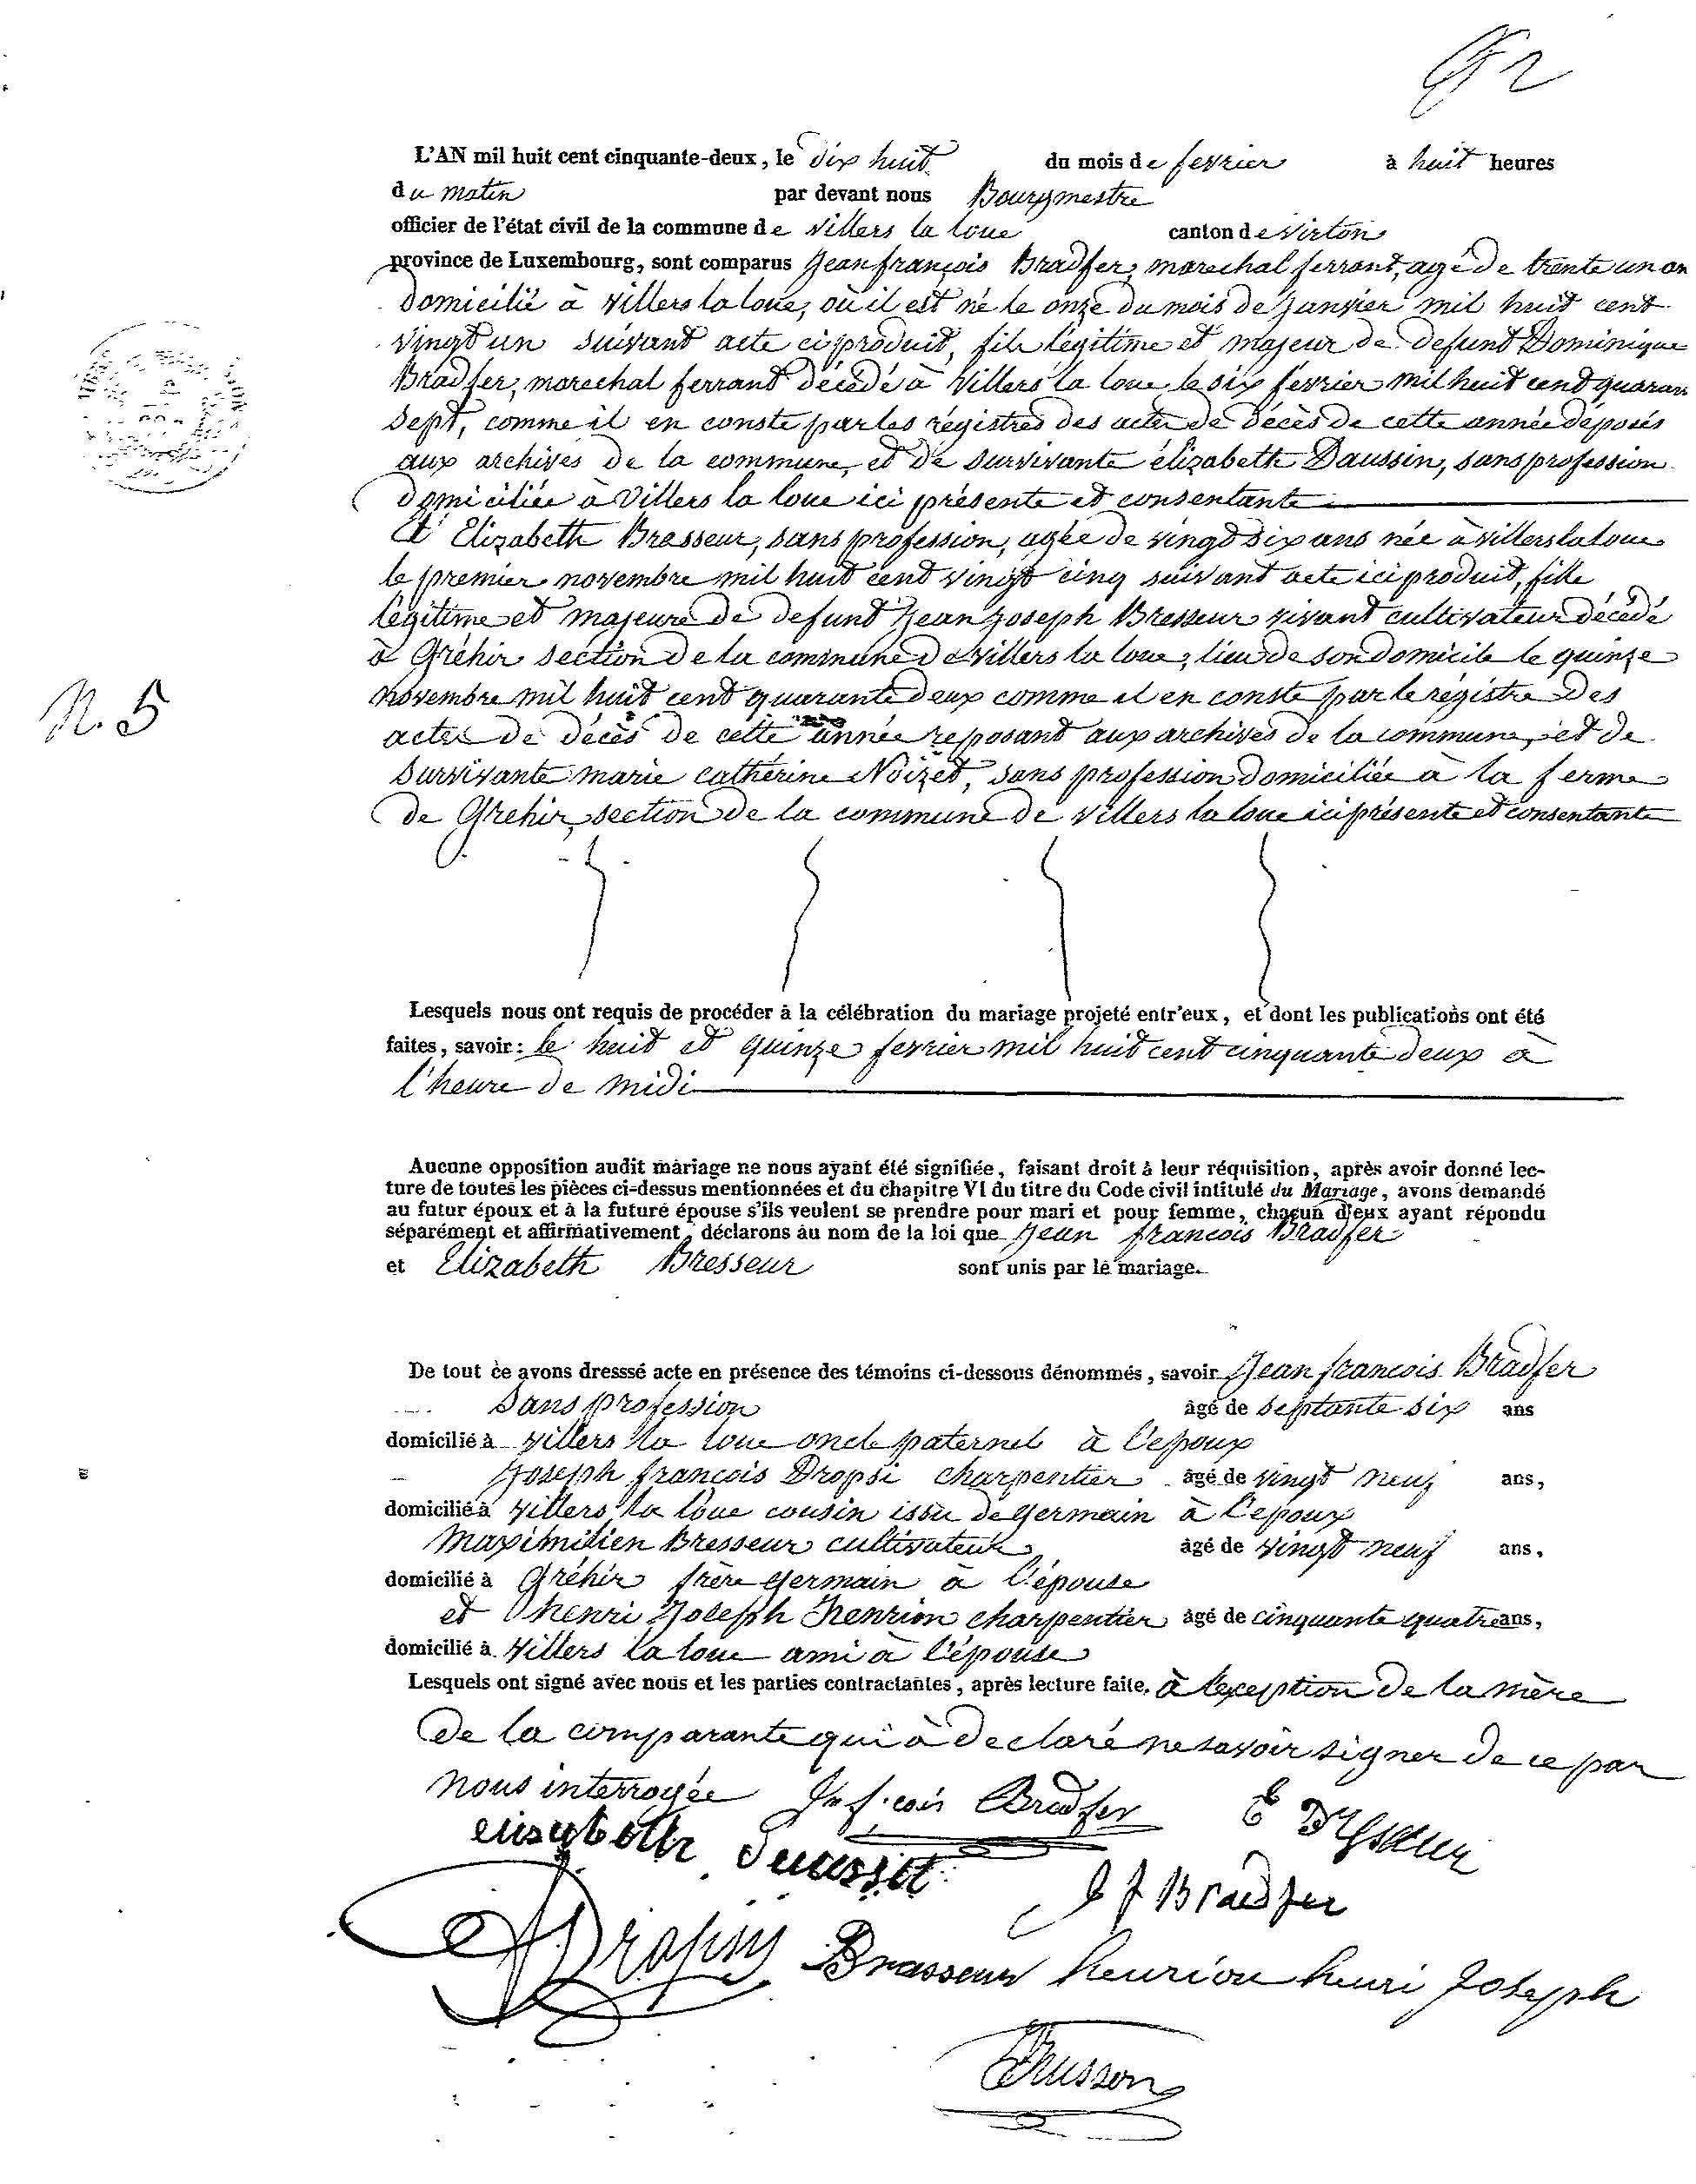 L'AN mil huit cent cinquante-deux, le dix huit du mois de fevrier à huit heures
du matin par devant nous Bourgmestre
officier de l'état civil de la commune de Villers la loue canton de Virton
province de Luxembourg, sont comparus Jean françois Bradfer, marechal ferrant, agé de trente un an
domicilié à Villers la loue, où il est né le onze du mois de janvier mil huit cent
vingt un suivant acte ci produit, fils légitime et majeur de defunt Dominique
Bradfer, marechal ferrant décédé à Villers la loue le six fevrier mil huit cent quaran
sept, comme il en conste par les régistres des actes de décès de cette année déposés
aux archives de la commune, et de survivante élizabeth Daussin, sans profession
domiciliée à Villers la loue ici présente et consentante
Et Elizabeth Brasseur, sans profession, agée de vingt six ans née à villers la loue
le premier novembre mil huit cent vingt cinq suivant acte ici produit, fille
légitime et majeure de defunt Jean Joseph Bresseur vivant cultivateur décédé
à Gréhir section de la commune de Villers la loue, lieu de son domicile le quinze
N. 5
novembre mil huit cent quarante deux comme il en conste par le régistre des
actes de décès de cette année reposant aux archives de la commune, et de
survivante marie cathérine Noizet, sans profession domiciliée à la ferme
de Grehir, section de la commune de Villers la loue ici présente et consentante
Lesquels nous ont requis de procéder à la célébration du mariage projeté entr'eux, et dont les publications ont été
faites, savoir: le huit et quinze fevrier mil huit cent cinquante deux à
l'heure de midi
Aucune opposition audit mariage ne nous ayant été signifiée, faisant droit à leur réquisition, après avoir donné lec-
ture de toutes les pièces ci-dessus mentionnées et du chapitre VI du titre du Code civil intitulé du Mariage, avons demandé
au futur époux et à la future épouse s'ils veulent se prendre pour mari et pour femme, chacun d'eux ayant répondu
séparément et affirmativement, déclarons au nom de la loi que Jean francois Bradfer
et Elizabeth Bresseur sont unis par le mariage.
De tout ce avons dresssé acte en présence des témoins ci-dessous dénommés, savoir Jean francois Bradfer
sans profession âgé de septante six ans
domicilié à Villers la loue oncle paternel à l'epoux
Joseph francois Dropsi charpentier âgé de vingt neuf ans,
domicilié à Villers la loue cousin issu de germain à l'epoux
Maximilien Bresseur cultivateur âgé de vingt neuf ans,
domicilié à Gréhir frère germain à l'épouse
et henri Joseph henrion charpentier âgé de cinquante quatre ans,
domicilié à Villers la loue ami à l'épouse
Lesquels ont signé avec nous et les parties contractantes, après lecture faite, à l'exception de la mère
de la comparante qui à declaré ne savoir signer de ce par
nous interrogée Jn f.cois Bradfer
J f Bradfer
Dropsy Brasseur henrion henri Joseph
Husson